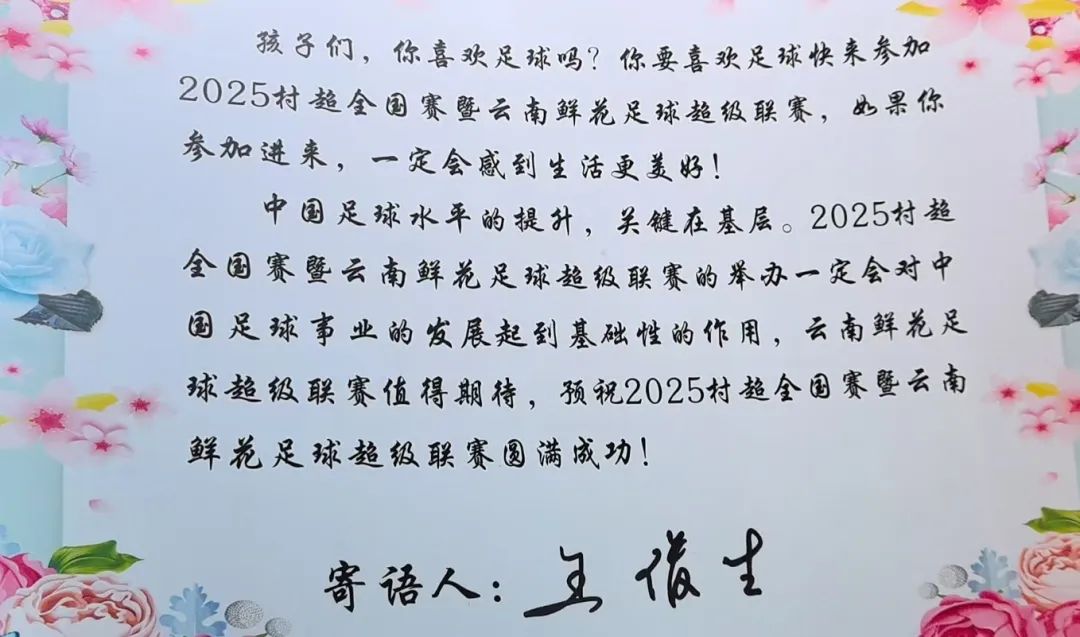 孩子们，你喜欢足球吗？你要喜欢足球快来参加
2025村超全国赛暨云南鲜花足球超级联赛，如果你
参加进来，一定会感到生活更美好！
中国足球水平的提升，关键在基层。2025村超
全国赛暨云南鲜花足球超级联赛的举办一定会对中
国足球事业的发展起到基础性的作用，云南鲜花足
球超级联赛值得期待，预祝2025村超全国赛暨云南
鲜花足球超级联赛圆满成功！
寄语人：王俊生